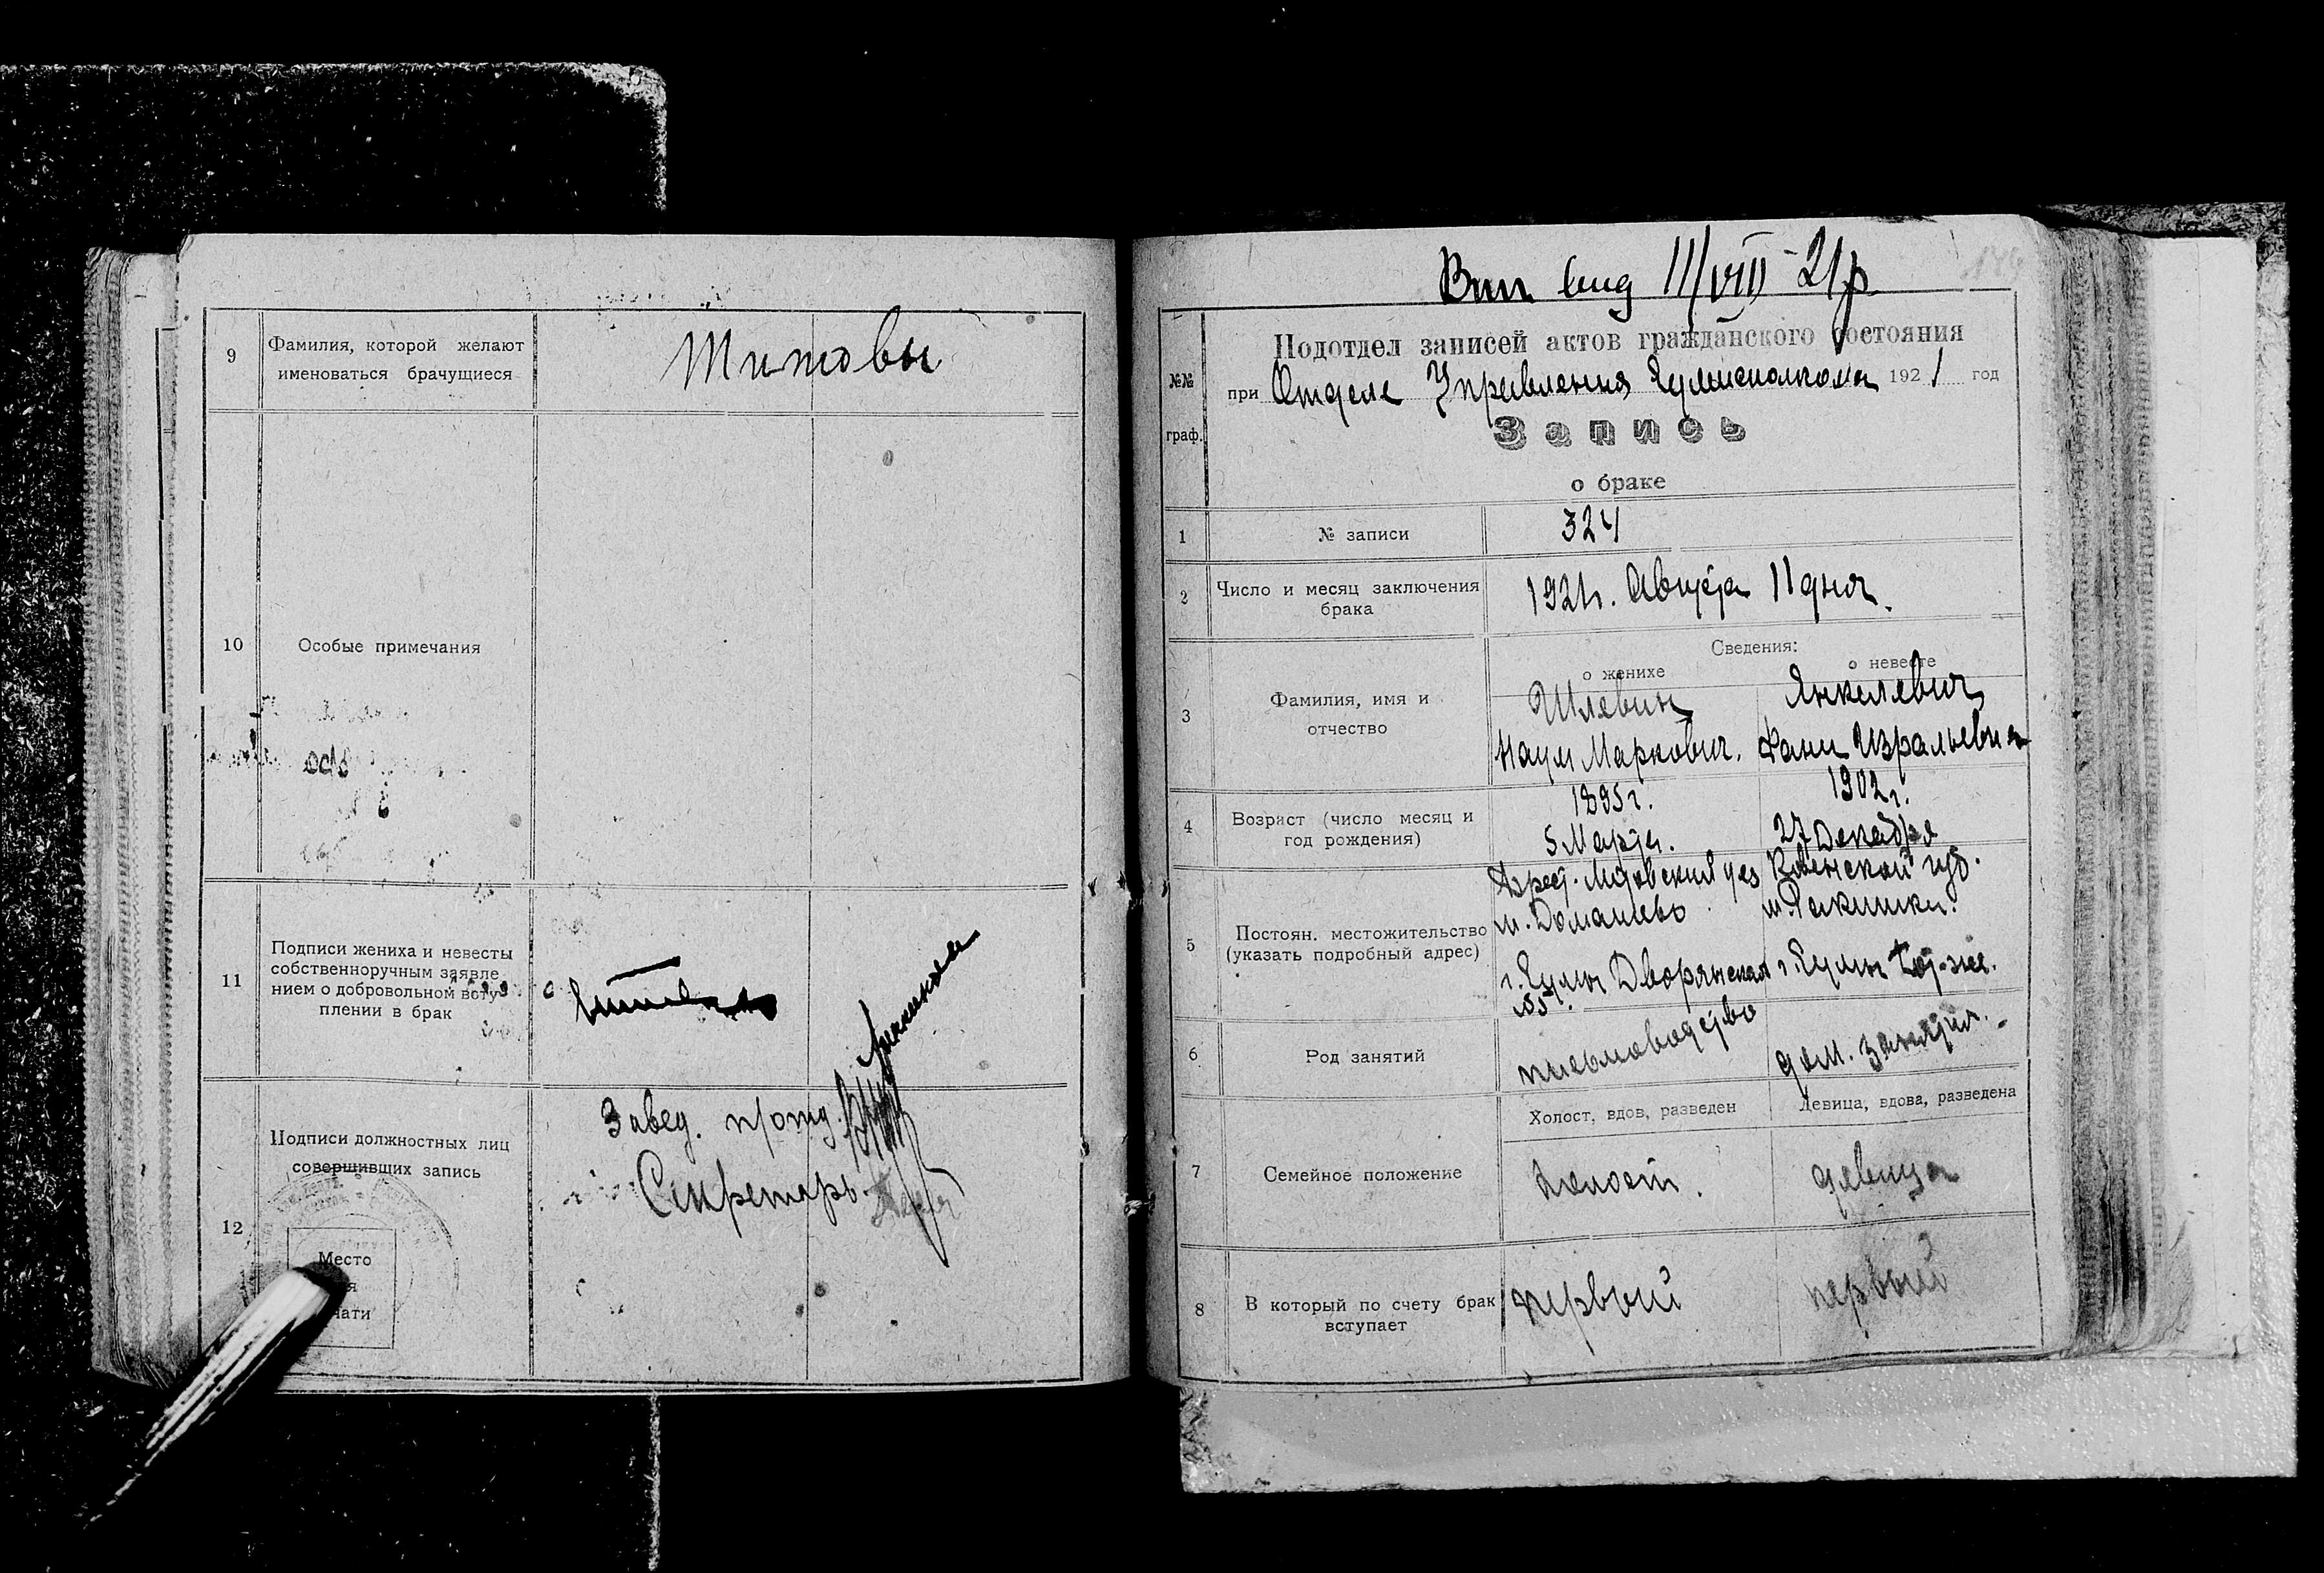 9
Фамилия, которой желают
именоваться брачущиеся
Титовы
10
Особые примечания
11
Подписи жениха и невесты
собственноручным заявле
нием о добровольном всту
плении в брак
12
Подписи должностных лиц
совершивших запись
Завед. п/отд.
Секретарь
Место
Вип вид 11/VIII-21р
№№
граф.
Подотдел записей актов гражданского состояния
при Отделе Управления 1921 год
Запись
о браке
1
№ записи
324
2
Число и месяц заключения
брака
1921г. Августа 11 дня.
Сведения:
о женихе
о невесте
3
Фамилия, имя и
отчество
Шлевин
Наум Маркович.
Янкелевич
Фани Изральевна
4
Возраст (число месяц и
год рождения)
1895г.
5 Марта.
1902г.
27 Декабря
5
Постоян. местожительство
(указать подробный адрес)
Брест. уез
м. Домашево
Ковенской губ.
м. Ракишки.
Дворянская
№5.
6
Род занятий
письмоводство
дом. занятия.
7
Семейное положение
Холост, вдов, разведен
Девица, вдова, разведена
холост.
девица
8
В который по счету брак
вступает
первый
первый